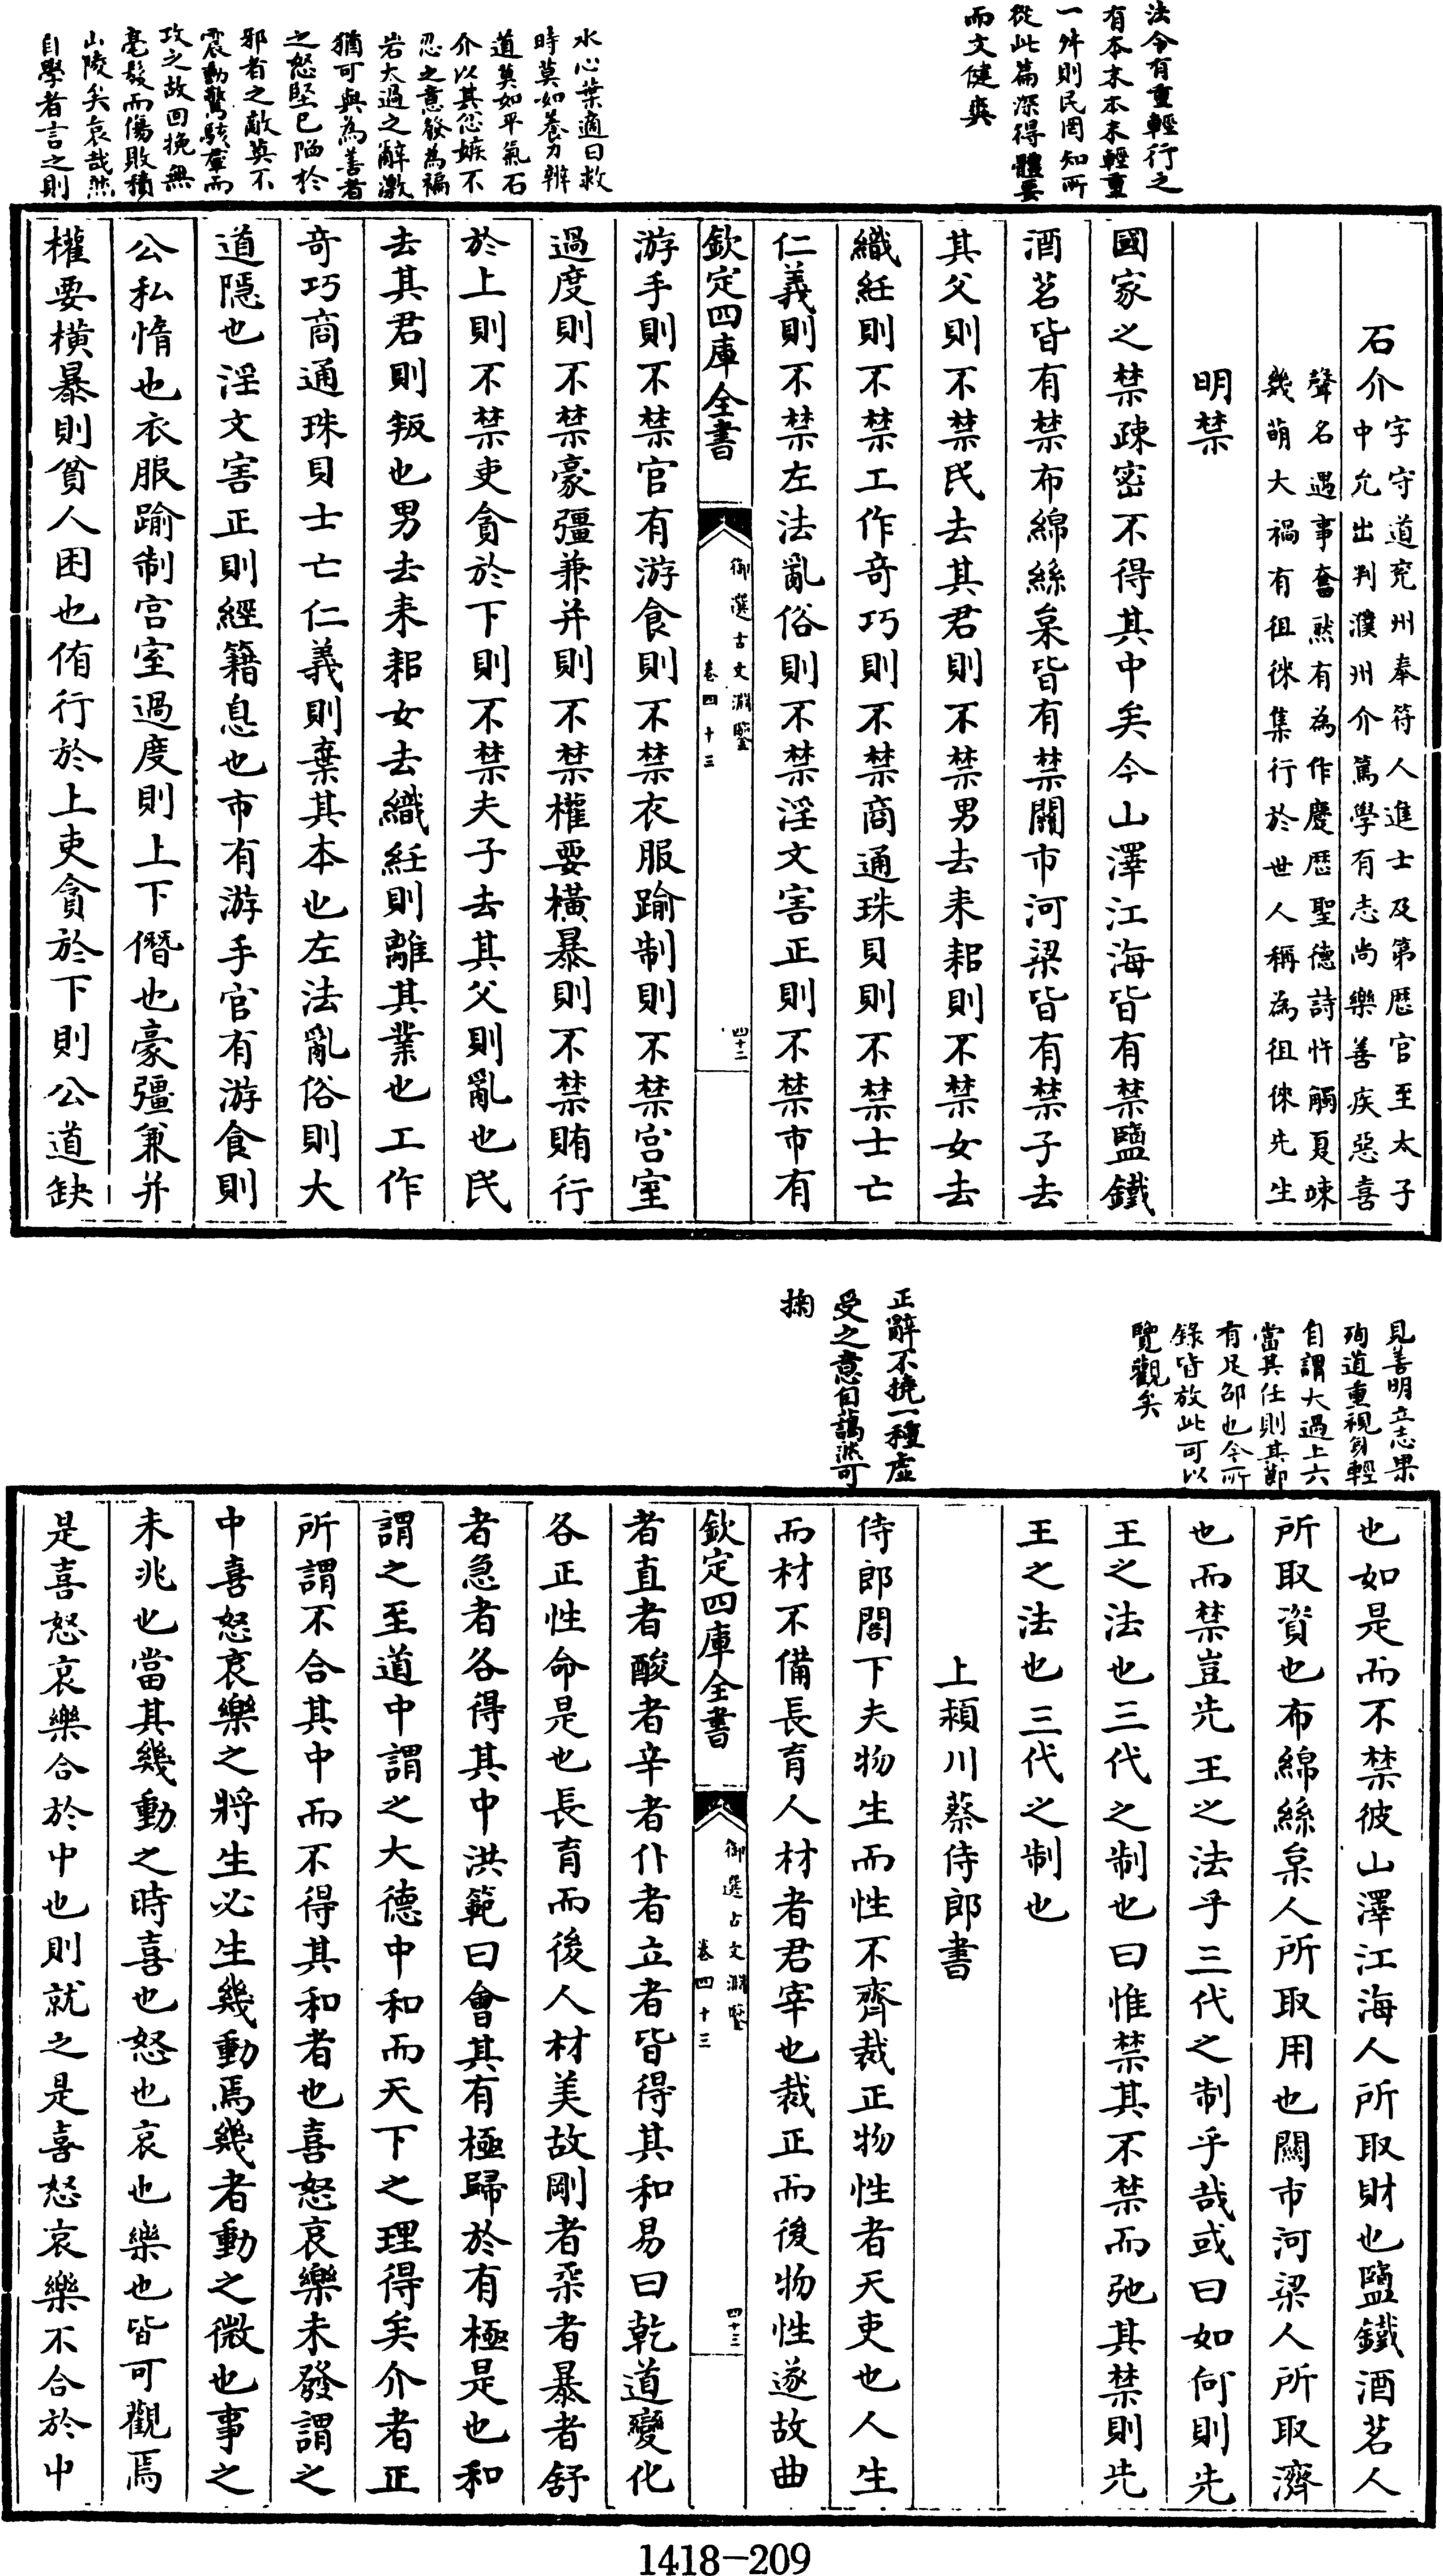 法令有重輕行之
有本末本末輕重
一舛則民罔知所
從此篇深得體要
而文健爽
水心葉適曰救
時莫如養力辨
道莫如平氣石
介以其忿嫉不
忍之意發為褊
宕太過之辭激
猶可與為善者
之怒堅已陷於
邪者之敵莫不
震動驚駭羣而
攻之故回挽無
毫髮而傷敗積
山陵矣哀哉然
自學者言之則
石介
字守道兖州奉符人進士及第歴官至太子
中允出判濮州介篤學有志尚樂善疾惡喜
聲名遇事奮然有為作慶厯聖德詩忤觸夏竦
幾萌大禍有徂徠集行於世人稱為徂徠先生
明禁
國家之禁疎密不得其中矣今山澤江海皆有禁鹽鐵
酒茗皆有禁布綿絲枲皆有禁關市河梁皆有禁子去
其父則不禁民去其君則不禁男去耒耜則不禁女去
織紝則不禁工作竒巧則不禁商通珠貝則不禁士亡
仁義則不禁左法亂俗則不禁淫文害正則不禁市有
欽定四庫全書
御選古文淵鑒
卷四十三
四十二
游手則不禁官有游食則不禁衣服踰制則不禁宫室
過度則不禁豪彊兼并則不禁權要橫暴則不禁賄行
於上則不禁吏貪於下則不禁夫子去其父則亂也民
去其君則叛也男去耒耜女去織紝則離其業也工作
竒巧商通珠貝士亡仁義則棄其本也左法亂俗則大
道隠也淫文害正則經籍息也市有游手官有游食則
公私惰也衣服踰制宫室過度則上下僭也豪彊兼并
權要橫暴則貧人困也侑行於上吏貪於下則公道缺
見善明立志果
殉道重視身輕
自謂大過上六
當其任則其節
有足卲也今所
錄皆放此可以
覽觀矣
正辭不撓一種虛
受之意自藹然可
掬
也如是而不禁彼山澤江海人所取財也鹽鐵酒茗人
所取資也布綿絲枲人所取用也關市河梁人所取濟
也而禁豈先王之法乎三代之制乎哉或曰如何則先
王之法也三代之制也曰惟禁其不禁而弛其禁則先
王之法也三代之制也
上潁川蔡侍郎書
侍郎閤下夫物生而性不齊裁正物性者天吏也人生
而材不備長育人材者君宰也裁正而後物性遂故曲
欽定四庫全書
御選古文淵鑒
卷四十三
四十三
者直者酸者辛者仆者立者皆得其和易曰乾道變化
各正性命是也長育而後人材美故剛者柔者暴者舒
者急者各得其中洪範曰會其有極歸於有極是也和
謂之至道中謂之大德中和而天下之理得矣介者正
所謂不合其中而不得其和者也喜怒哀樂未發謂之
中喜怒哀樂之將生必生幾動焉幾者動之微也事之
未兆也當其幾動之時喜也怒也哀也樂也皆可觀焉
是喜怒哀樂合於中也則就之是喜怒哀樂不合於中
1418-209